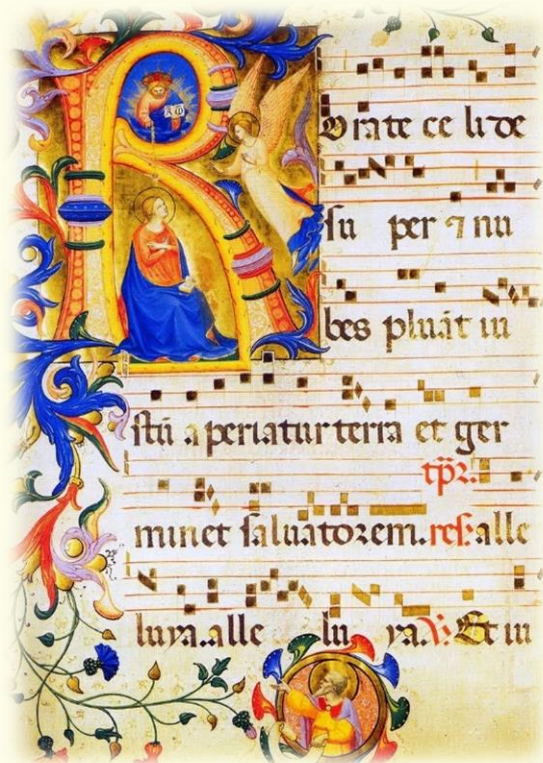 R
Orate celi de
su per ⁊ nu
bes pluāt iu
stū aperiatur terra et ger
tp̄r.
minet saluatorem. res: alle
luya..alle lu ya. V. Et iu